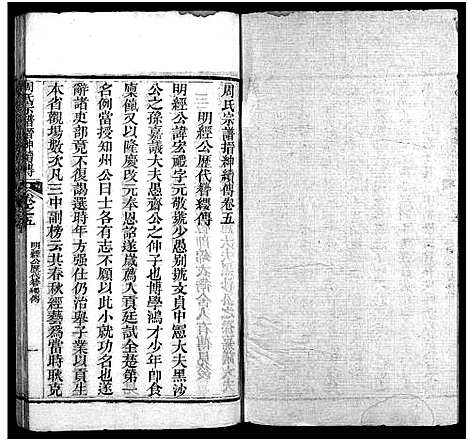 周氏宗譜搢紳續傳卷五
明經公歷代簪纓傳
明經公諱宏禮字元敬號少愚別號文貞中憲大夫黑沙
公之孫嘉議大夫愚齋公之仲子也博學鴻才少年即食
廩餼又以隆慶改元奉恩詔遂歲薦入貢廷試全楚第
名例當授知州公曰士各有志不願以此小就功名也遂
辭諸吏部竟不復謁選時年方強仕仍治舉子業以貢生
本省觀場數次凡三中副榜云其春秋經藝為當時耿克
周氏宗譜搢紳續傳
卷之五
明經公歷代簪纓傳
一